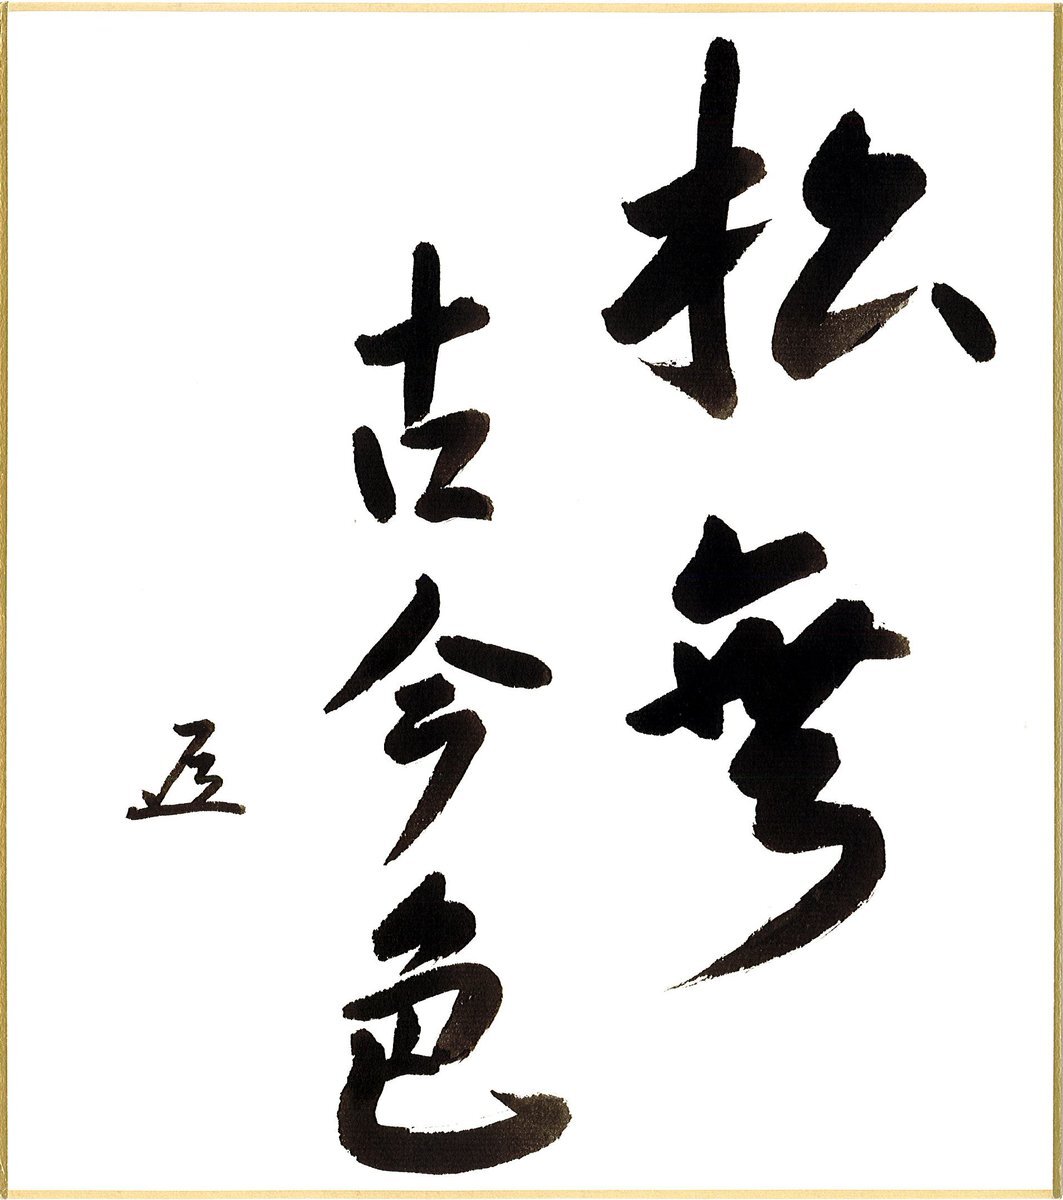 松無
古今色